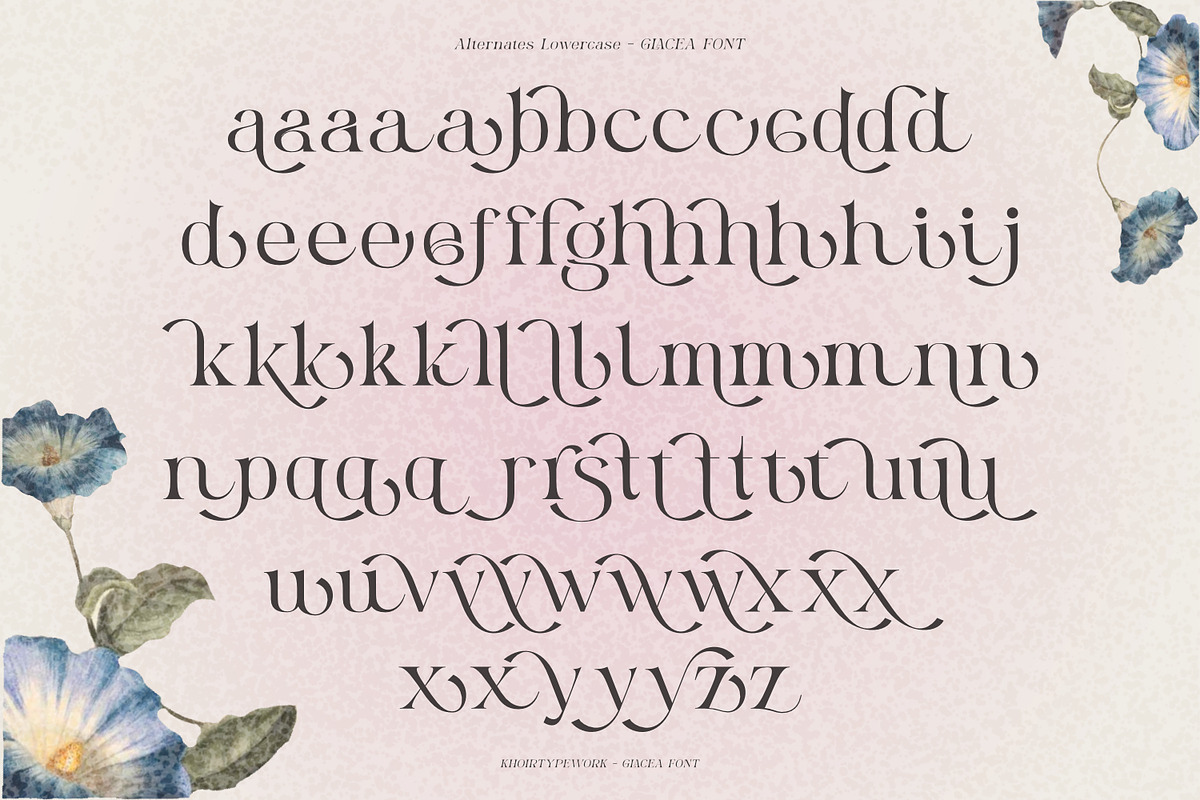 Alternates Lowercase - GIACEA FONT
aaaaabbccccddd
deeeefffghhhhhiij
kkkkkllllmmmnnn
npqqqq rrsttttttuuu
uuvvvvwwwxxx
xxyyyzz
KHOIRTYPEWORK - GIACEA FONT